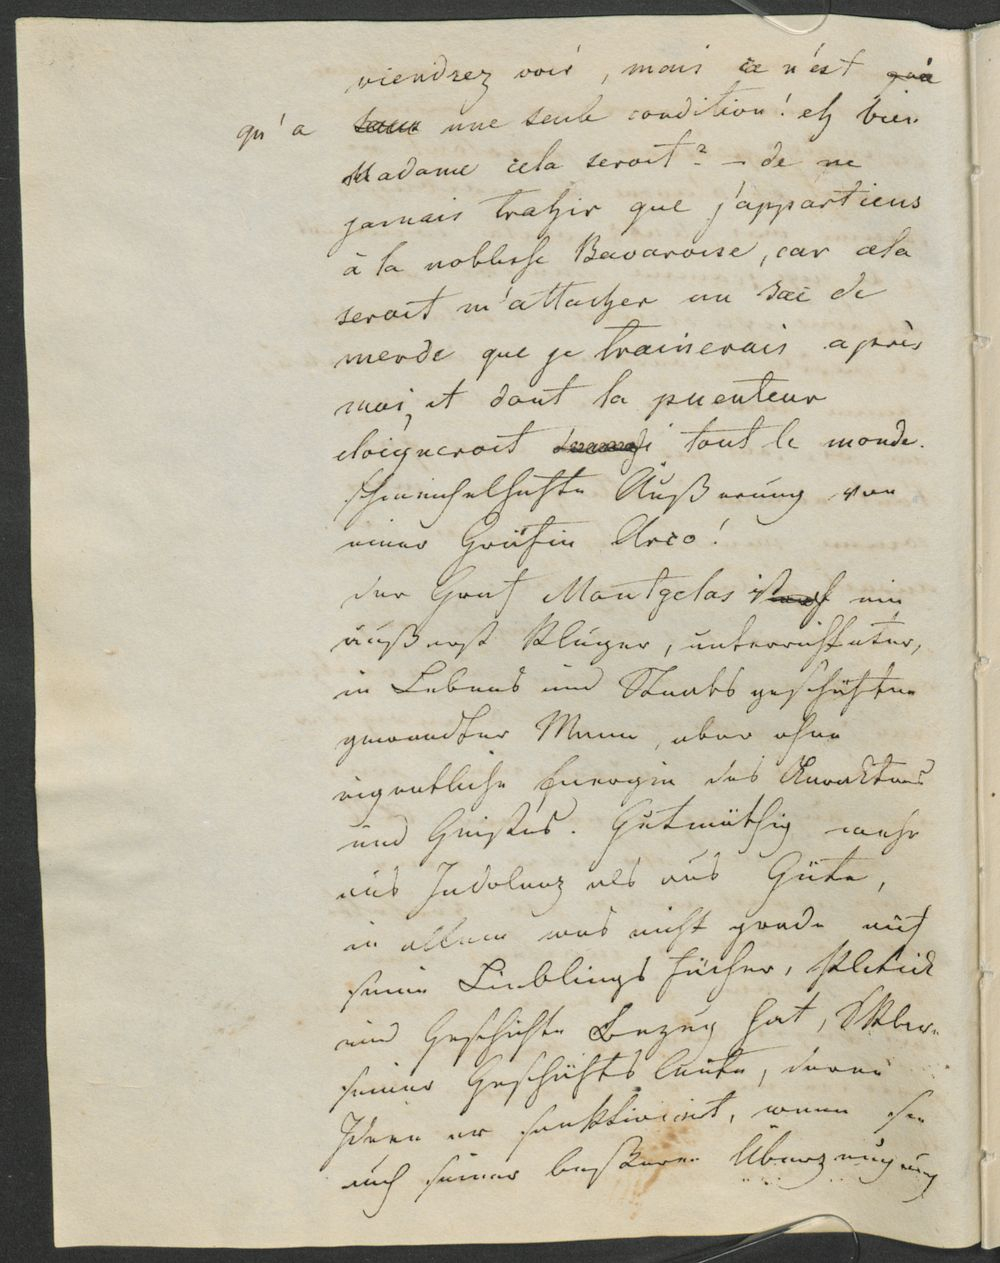 viendrez voir, mais ce n'est
qu'a une seule condition! eh bien
Madame cela seroit? – de ne
jamais trahir que j'appartiens
à la noblesse Bavaroise, car cela
seroit m'attacher un sac de
merde que je trainerais après
moi, et dont la puenteur
eloigneroit tout le monde.
schmeichelhafte Äußerung von
einer Gräfin Arco!
Der Graf Montgelas ist ein
äußerst kluger, unterrichteter,
in Lebens und Staatsgeschäften
gewandter Mann, aber ohne
eigentliche Energie des Karakters
und Geistes. Gutmüthig mehr
aus Indolenz als aus Güte,
in allem was nicht grade auf
seine Lieblings fächer, Politick
und Geschichte Bezug hat, Sklave
seiner Geschäftsleute, deren
Ideen er sanktionirt, wenn sie
auch seiner besseren Überzeugung